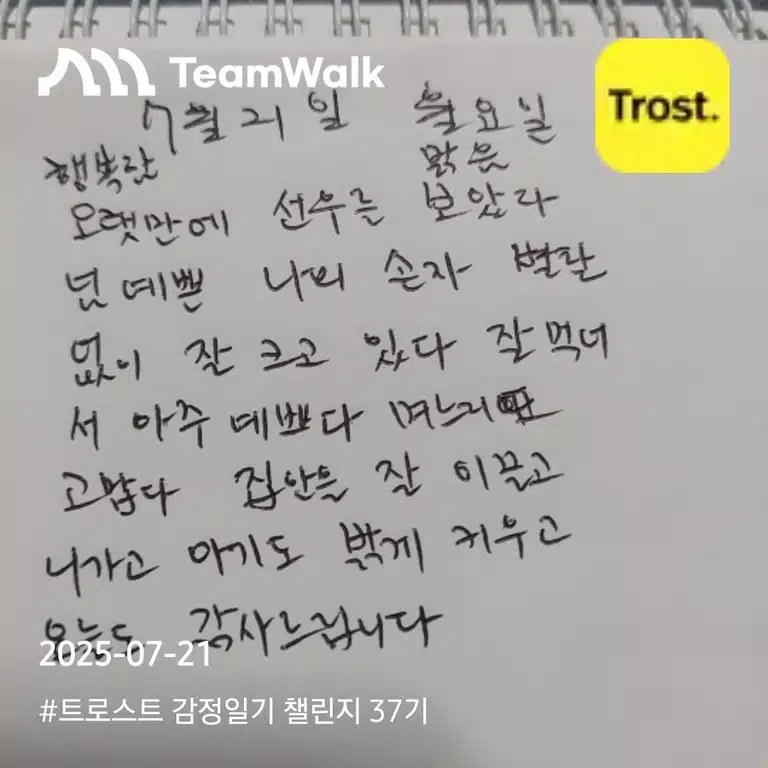 TeamWalk
Trost.
7월 21일 월요일
행복란 맑음
오랫만에 선우를 보았다
넘 예쁜 나의 손자 별탈
없이 잘 크고 있다 잘 먹너
서 아주 예쁘다 며느리도
고맙다 집안을 잘 이끌고
니가고 아기도 밝게 키우고
오늘도 감사느립니다
2025-07-21
#트로스트 감정일기 챌린지 37기